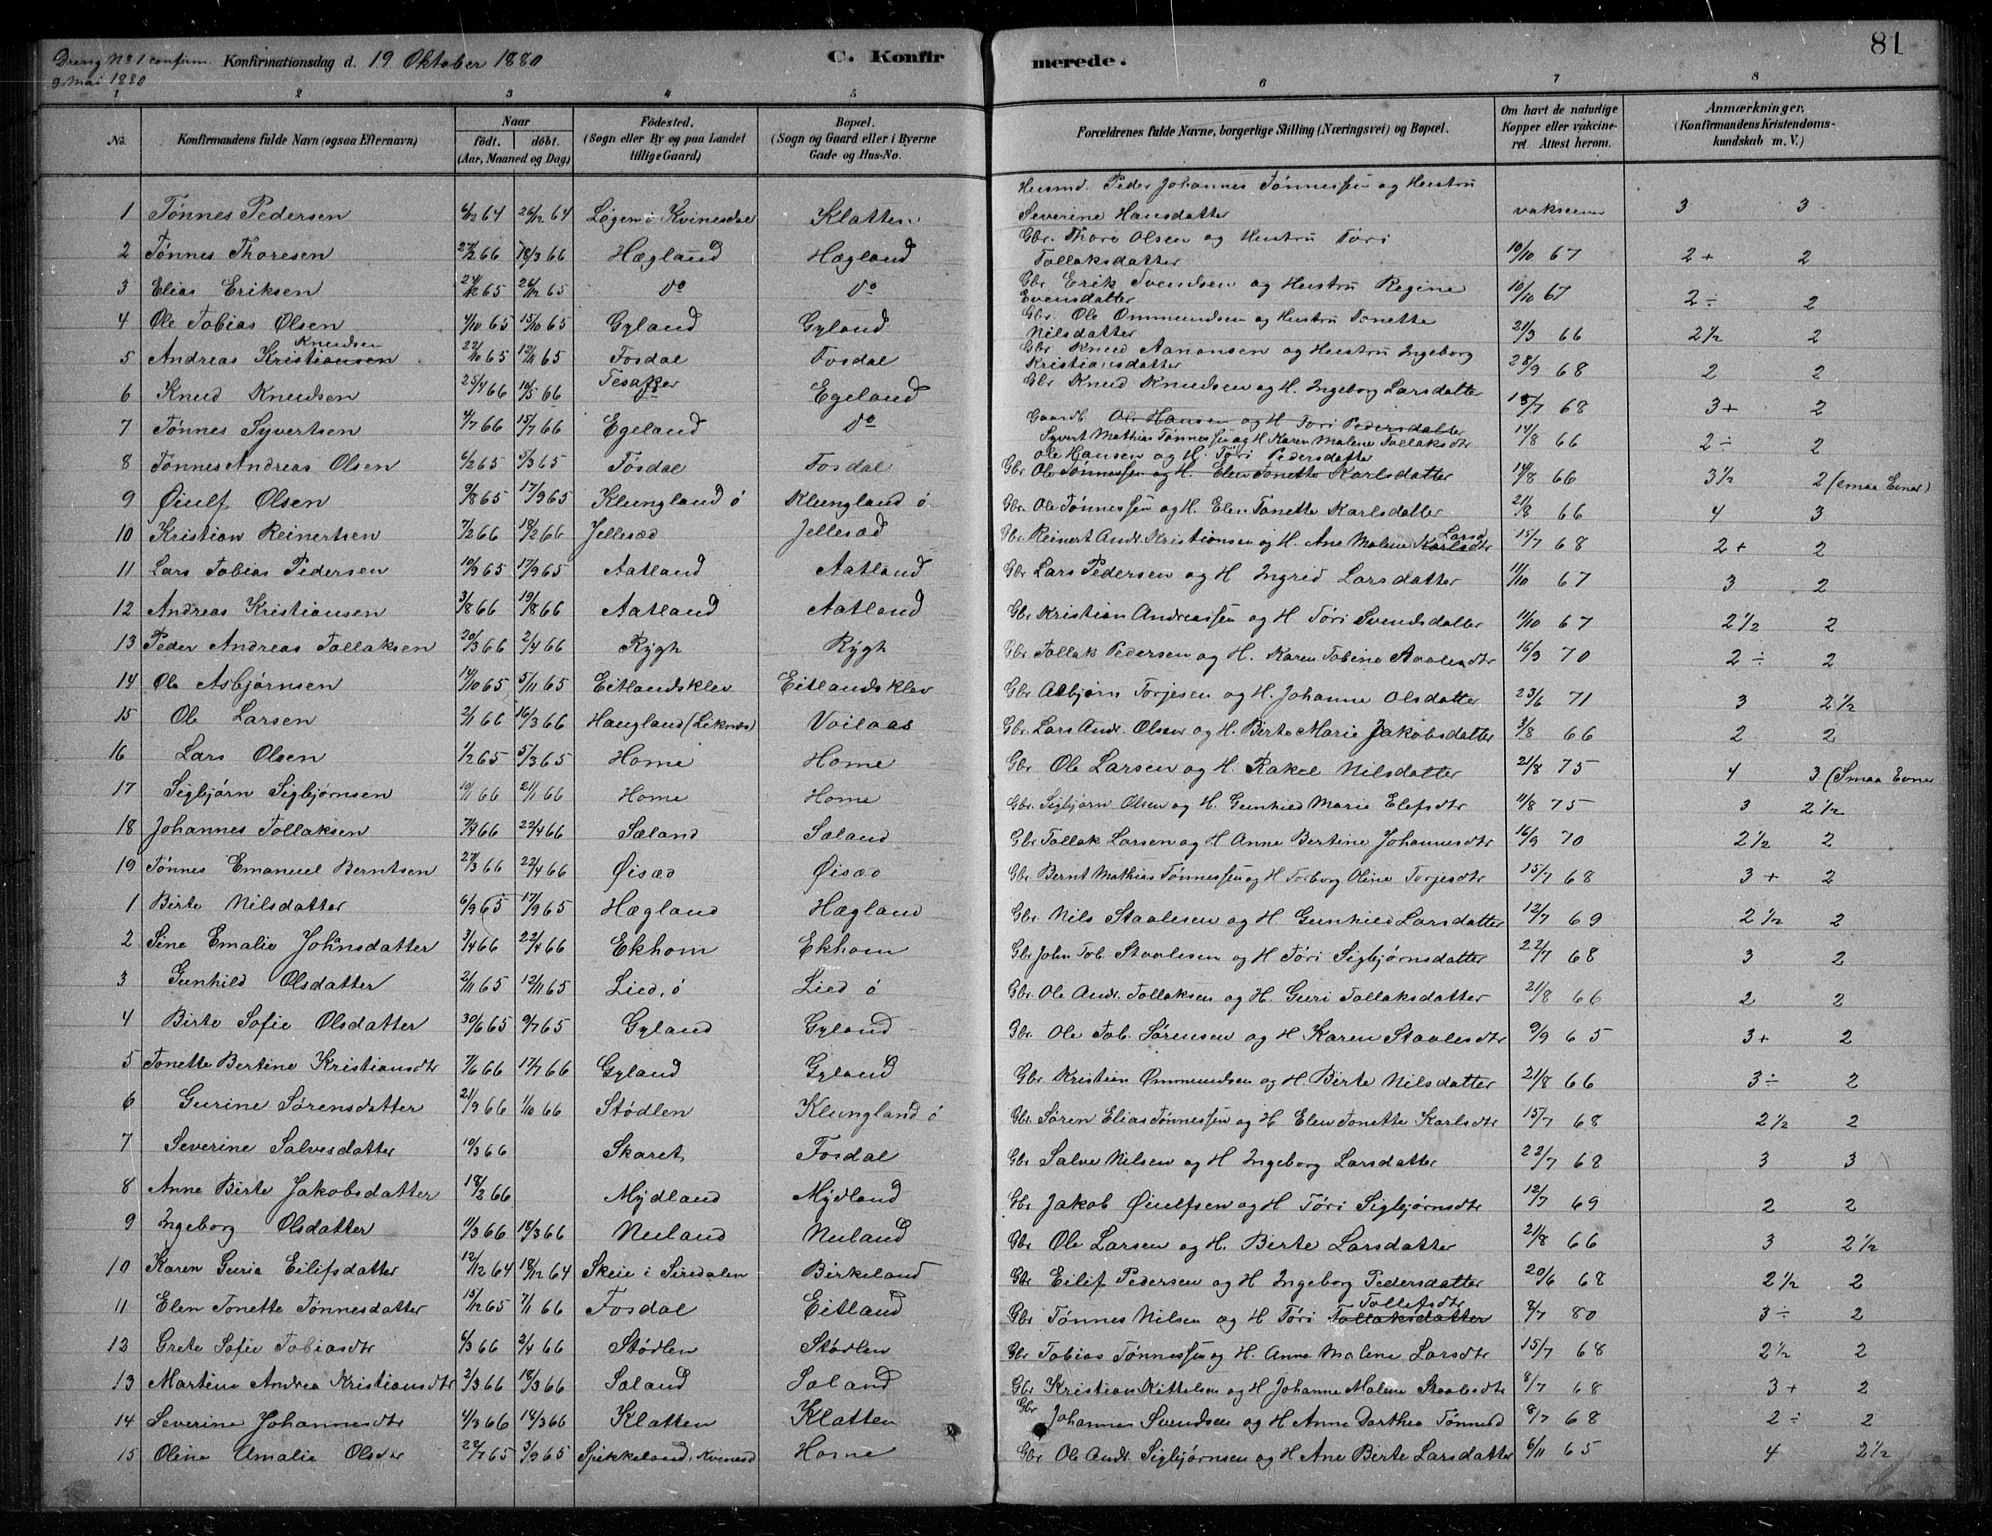 81
Dreng No 1 confirm. 9 Mai 1880
Konfirmationsdag d. 19 Oktober 1880 C. Konfirmerede.
1 2 3 4 5 6 7 8
No. Konfirmandens fulde Navn (ogsaa Efternavn) Naar født. døbt. (Aar, Maaned og Dag) Fødested. (Sogn eller By og paa Landet tillige Gaard) Bopæl. (Sogn og Gaard eller i Byerne Gade og Hus-No. Forældrenes fulde Navne, borgerlige Stilling (Næringsvei) og Bopæl. Om havt de naturlige Kopper eller vakcineret. Attest herom. Anmærkninger. (Konfirmandens Kristendomskundskab m. V.)
1 Tønnes Pedersen 6/12 64 26/12 64 Løgen i Kvinesdal Klatten Husmd. Peder Johannes Tønnessen og Hustru Severine Hansdatter 3 3
2 Tønnes Thoresen 27/2 66 18/3 66 Hægland Hægland Gbr. Thore Olsen og Hustru Tøri Tollaksdatter 10/10 67 2+ 2
3 Elias Eriksen 65 26/12 65 do do Gbr Erik Svendsen og Hustru Regine Evensdatter 10/10 67 2÷ 2
4 Ole Tobias Olsen 4/10 65 15/10 65 Gyland Gyland Gbr. Ole Ommundsen og Hustru Tonette Nilsdatter 21/3 66 2½ 2
5 Andreas Kristiansen Knudsen 22/10 65 12/11 65 Fosdal Fosdal Gbr Knud Aanonsen og Hustru Ingeborg Kristiansdatter 28/9 68 2 2
6 Knud Knudsen 25/4 66 10/5 66 Tesaker Egeland Gbr Knud Knudsen og H. Ingeborg Larsdatter 15/7 68 3+ 2
7 Tønnes Syvertsen 4/7 66 15/7 66 Egeland do Gaardb. Ole Hansen og H Tøri Pedersdatter Syvert Mathias Tønnessen og H Karen Malene Tollaksdtr 14/8 66 2÷ 2
8 Tønnes Andreas Olsen 6/2 65 5/3 65 Fosdal Fosdal Ole Hansen og H. Tøri Pedersdatter Gbr Ole Tønnessen og H. Elen Tonette Karlsdatter 14/8 66 3½ 2 (smaa Evner)
9 Øiulf Olsen 9/8 65 17/9 65 Klungland ø Klungland ø Gbr. Ole Tønnessen og H. Elen Tonette Karlsdatter 21/8 66 4 3
10 Kristian Reinertsen 7/2 66 18/2 66 Jellesæd Jellesæd Gbr. Reinert Andr. Kristiansen og H. Ane Malene Karlsdtr Larsd 15/7 68 2+ 2
11 Lars Tobias Pedersen 10/9 65 17/9 65 Aatland Aatland Gbr Lars Pedersen og H Ingrid Larsdatter 11/10 67 3 2
12 Andreas Kristiansen 3/8 66 19/8 66 Aatland Aatland Gbr Kristian Andreassen og H Tøri Svendsdatter 11/10 67 2½ 2
13 Peder Andreas Tollaksen 20/3 66 2/4 66 Rygh Rygh Gbr Tollak Pedersen og H. Karen Tobine 16/9 70 2÷ 2
14 Ole Asbjørnsen 14/10 65 5/11 65 Eitlandsklev Eitlandsklev Gbr Asbjørn Torjesen og H. Johanne Olsdatter 23/6 71 3 2½
15 Ole Larsen 2/1 66 16/3 66 Haugland (Liknæs) Voilaas Gbr. Lars Andr. Olsen og H. Birte Marie Jakobsdatter 3/8 66 2 2
16 Lars Olsen 1/2 65 5/3 65 Home Home Gbr Ole Larsen og H. Rakel Nilsdatter 21/8 75 4 3 (Smaa Evner
17 Sigbjørn Sigbjørnsen 10/1 66 21/1 66 Home Home Gbr. Sigbjørn Olsen og H. Gunhild Marie Elefsdtr 11/8 75 3 2½
18 Johannes Tollaksen 7/4 66 22/4 66 Sæland Sæland Gbr Tollak Larsen og H Anne Bertine Johannesdtr 16/9 70 2½ 2
19 Tønnes Emanuel Berntsen 27/3 66 22/4 66 Øisæd Øisæd Gbr Bernt Mathias Tønnessen og H Torborg Oline Torjesdtr 15/7 68 3+ 2
1 Birte Nilsdatter 6/9 65 17/9 65 Hægland Hægland Gbr Nils Staalesen og H Gunhild Larsdatter 12/7 69 2½ 2
2 Sine Emalie Johnsdatter 3/4 66 22/4 66 Ekhom Ekhom Gbr John Tob. Staalesen og H Tøri Sigbjørnsdatter 22/7 68 3 2
3 Gunhild Olsdatter 2/11 65 12/11 65 Lied, ø Lied ø Gbr Ole Andr. Tollaksen og H. Guri Tollaksdatter 21/8 66 2 2
4 Birte Sofie Olsdatter 30/6 65 9/7 65 Gyland Gyland Gbr. Ole Tob. Sørensen og H Karen Staalesdtr 9/9 65 3+ 2
5 Tonette Bertine Kristiansdtr 7/6 66 17/7 66 Gyland Gyland Gbr Kristian Ommundsen og H Birte Nilsdatter 21/8 66 3÷ 2
6 Gurine Sørensdatter 21/9 66 1/10 66 Stødlen Klungland ø Gbr Søren Elias Tønnessen og H Elen Tonette Karlsdtr 15/7 68 2½ 2
7 Severine Salvesdatter 10/3 66 Skaret Fosdal Gbr Salve Nilsen og H Ingeborg Larsdatter 22/7 68 3 3
8 Anne Birte Jakobsdatter 18/2 66 Mydland Mydland Gbr Jakob Øiulfsen og H Tøri Sigbjørnsdtr 12/7 69 2 2
9 Ingeborg Olsdatter 11/3 66 18/3 66 Nuland Nuland Gbr Ole Larsen og H. Birte Larsdatter 21/8 66 3 2½
10 Karen Guria Eilifsdatter 12/12 64 18/12 64 Skeie i Siredalen Birkeland Gbr Eilif Pedersen og H Ingeborg Pedersdatter 20/6 68 2½ 2
11 Elen Tonette Tønnesdatter 15/12 65 7/1 66 Fosdal Eitland Gbr Tønnes Nilsen og H Tøri Tollaksdatter Tollefsdtr 8/7 80 3÷ 2
12 Grete Sofie Tobiasdtr 6/3 66 2/4 66 Stødlen Stødlen Gbr Tobias Tønnessen og H. Anne Malene Larsdtr 15/7 68 2½ 2
13 Martine Andrea Kristiansdtr 2/3 66 18/3 66 Saland Saland Gbr Kristian Kittelsen og H Johanne Malene Staalesdtr 8/7 68 3+ 2
14 Severine Johannesdtr 4/3 66 18/3 66 Klatten Klatten Gbr Johannes Svendsen og H Anne Dorthea Tønnesd 8/7 68 2÷ 2
15 Oline Amalie Olsdtr 22/7 65 3/9 65 Spikkeland, Kvinesd Home Gbr Ole Andr. Sigbjørnsen og H Ane Birte Larsdatter 6/11 65 4 2½